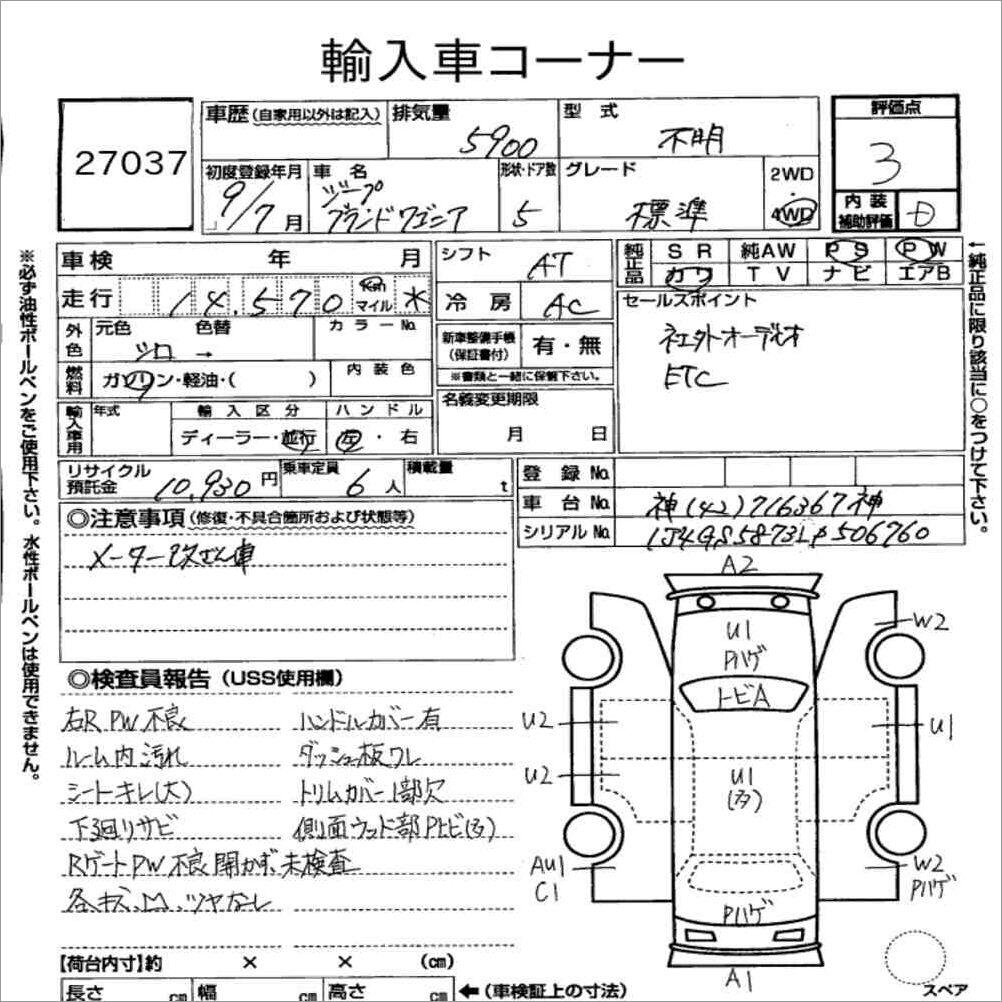 輸入車コーナー
27037
車歴 (自家用以外は記入)
排気量 5900
型式 不明
評価点 3
初度登録年月 9/7月
車名 ジープ
グランドワゴニア
形状・ドア数 5
グレード 標準
2WD・4WD
内装補助評価 D
車検 年 月
走行 14,570 Km マイル
シフト AT
冷房 AC
純正品 SR 純AW PS PW
カワ TV ナビ エアB
外色 元色 シロ 色替 → カラーNo.
燃料 ガソリン・軽油・( ) 内装色
新車整備手帳(保証書付) 有・無
※書類と一緒に保管下さい。
セールスポイント
社外オーディオ
ETC
輸入車用 年式 輸入区分 ハンドル
ディーラー・並行 左・右
名義変更期限 月 日
リサイクル預託金 10,930円
乗車定員 6人
積載量 t
登録No.
車台No. 神(42)716367神
シリアルNo. 1J4GS5873LP506760
◎注意事項 (修復・不具合箇所および状態等)
メーター改ざん車
◎検査員報告 (USS使用欄)
右R、PW不良 ハンドルカバー有
ルーム内汚れ ダッシュ板ワレ
シートキレ(大) トリムカバー1部欠
下廻りサビ 側面ウッド部Pトビ(多)
RゲートPW不良開かず、未検査
各、キズ、凹、ツヤなし
【荷台内寸】約 × × (cm)
長さ cm 幅 cm 高さ cm ←(車検証上の寸法)
A2
U1
Pハゲ
W2
トビA
U2
U1
U2
U1
(多)
AU1
C1
W2
Pハゲ
Pハゲ
A1
スペア
※必ず油性ボールペンをご使用下さい。水性ボールペンは使用できません。
←純正品に限り該当に○をつけて下さい。